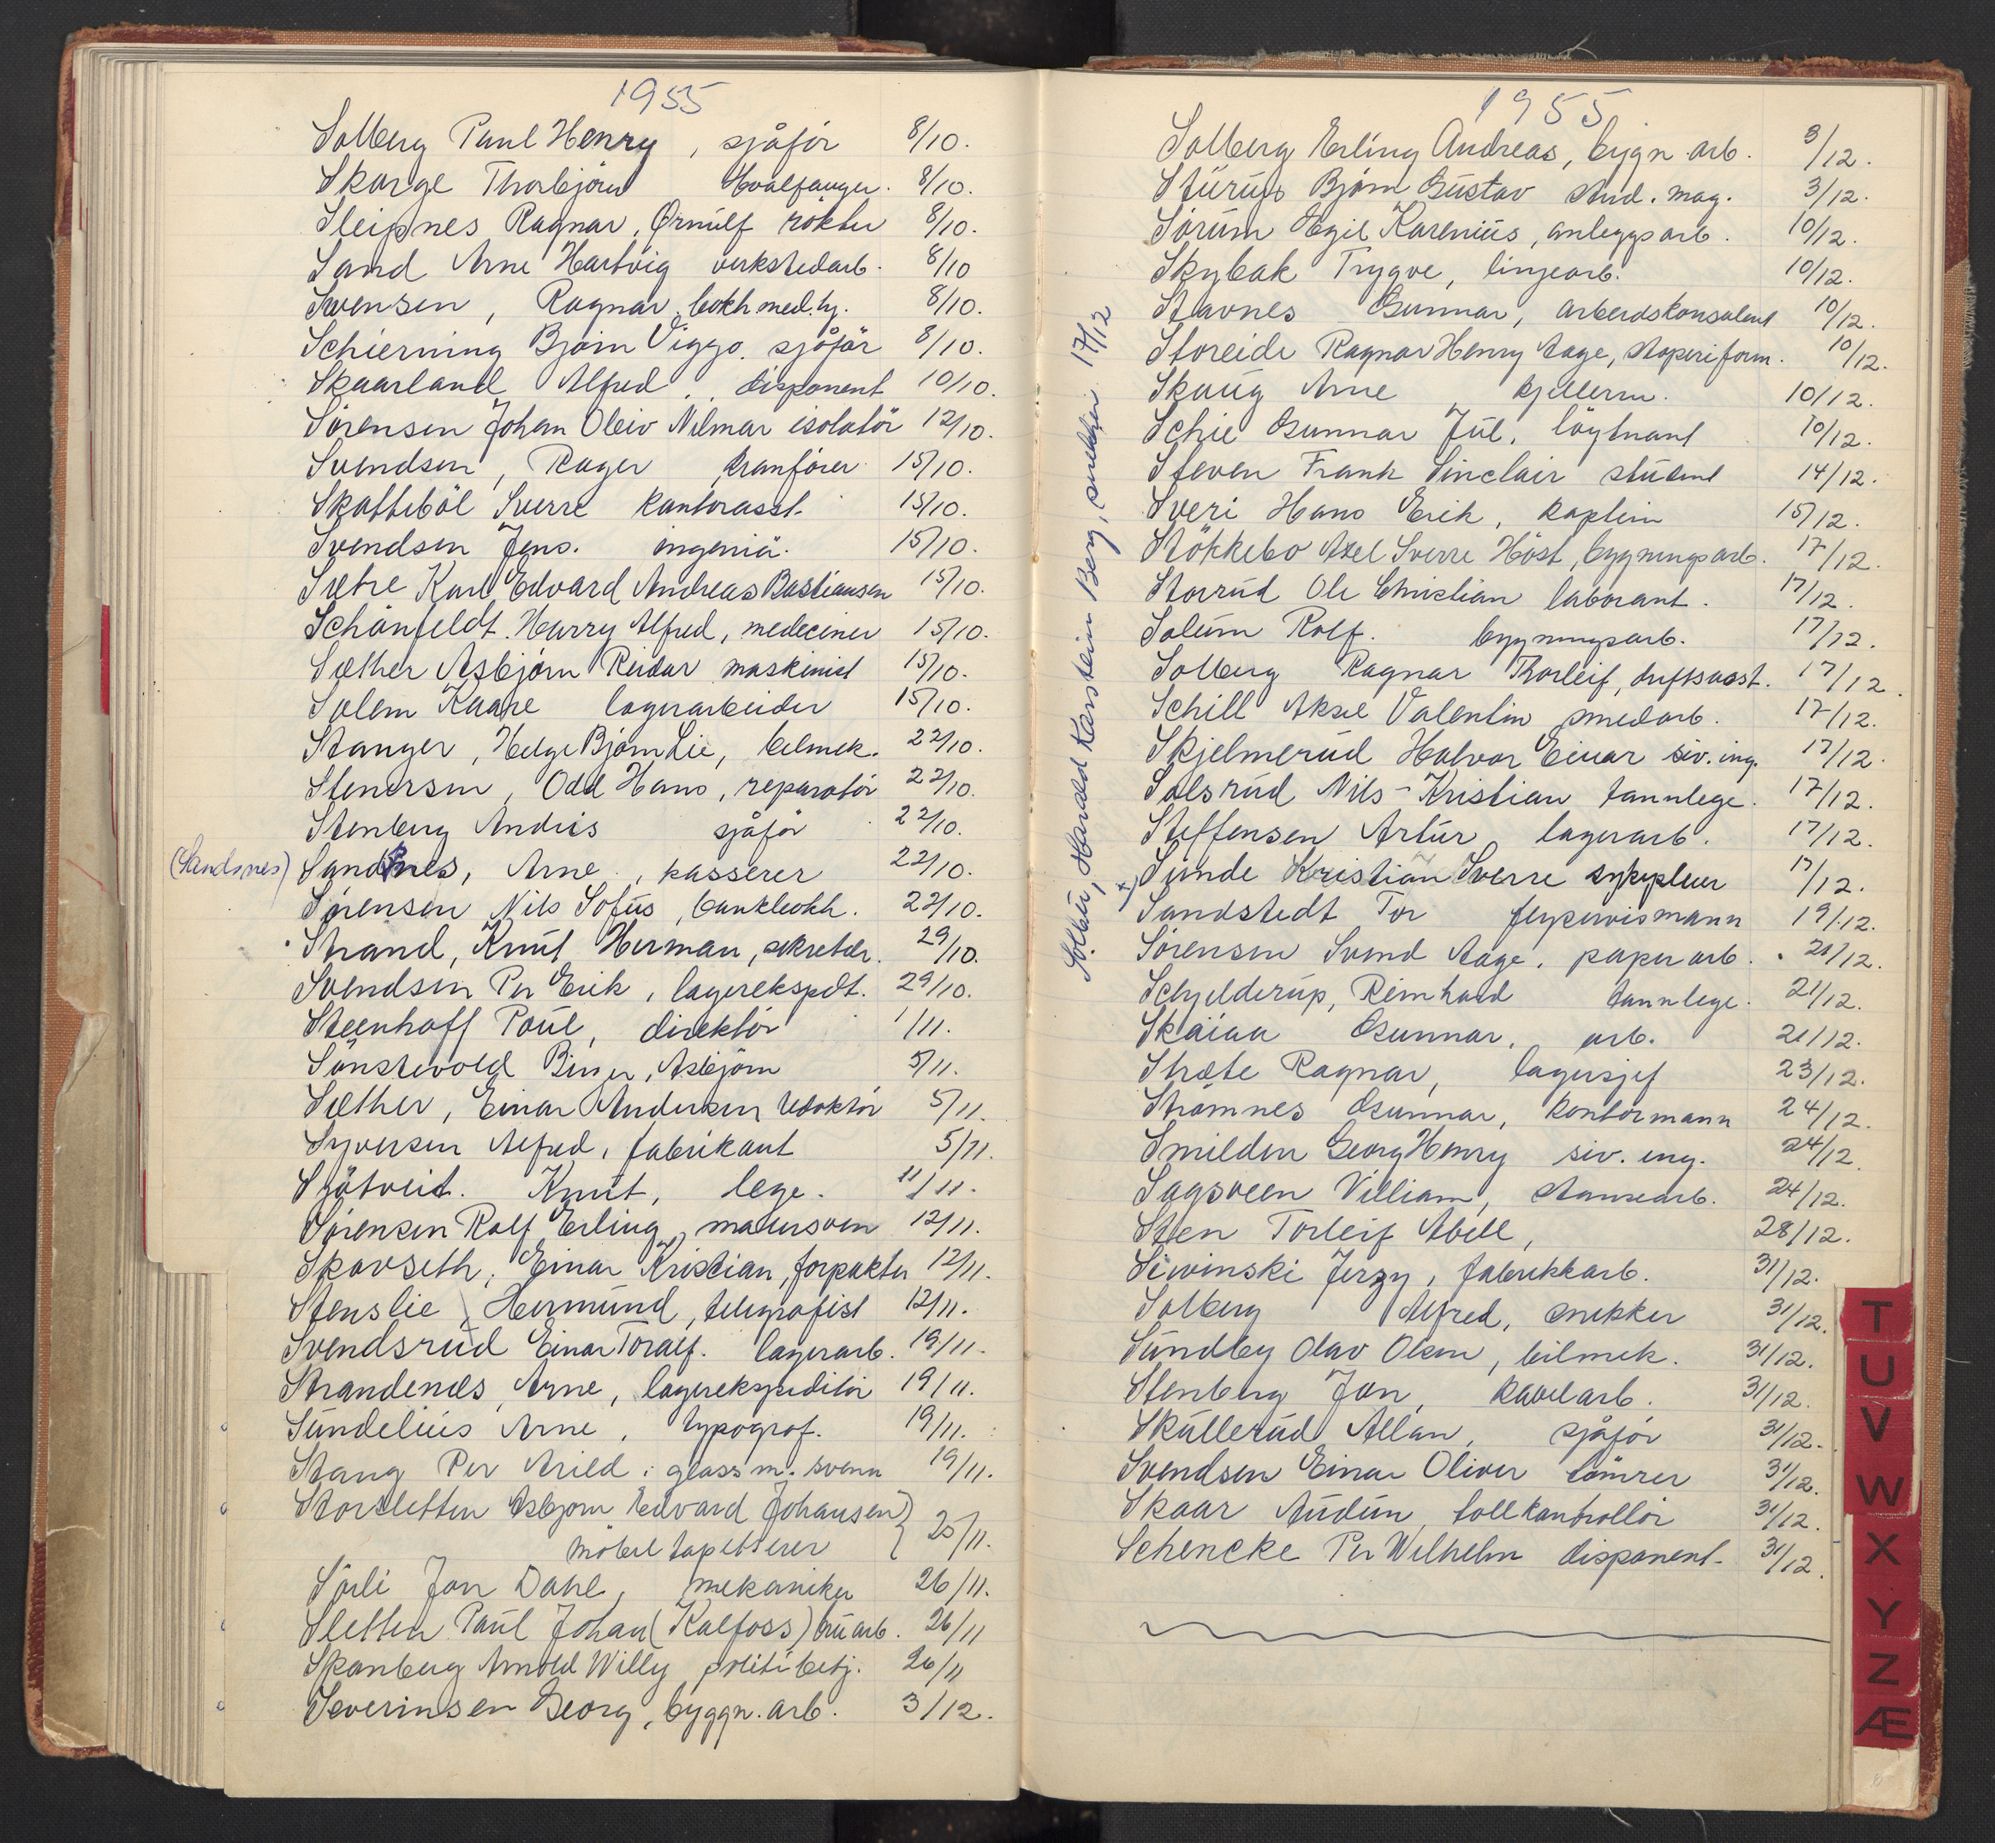 1955
Solberg Paul Henry, sjåför 8/10.
Skorge Thorbjörn Hvalfanger. 8/10.
Sleipnes Ragnar, Ørnulf rökter 8/10.
Sand Arne Hartvig verkstedarb. 8/10
Svensen, Ragnar, bokh.med.hj. 8/10.
Schierning Bjørn Viggo, sjåför 8/10.
Skaarland Alfred, disponent 10/10.
Sørensen Johan Oleiv Nilmar isolatör 12/10.
Svendsen, Roger kranfører 15/10.
Skatteböl Sverre kontorasst. 15/10.
Svendsen Jens. ingeniö. 15/10.
Sætre Karl Edvard Andreas Bastiansen 15/10.
Schönfeldt. Harry Alfred, mediciner 15/10.
Sæther Asbjörn Reidar maskinist 15/10.
Solem Kaare lagerarbeider 15/10.
Stanger, Helge Bjørn Lie, bilmek. 22/10.
Stenersen, Odd Hans, reparatör 22/10.
Stenberg Andreis sjåför 22/10.
(Sandsnes) Sandnes, Arne, kasserer 22/10.
Sørensen Nils Sofus, bankbokh. 22/10.
Strand, Knut Herman, sekretær. 29/10.
Svendsen Per Erik, lagerekspdt. 29/10.
Steenhoff Poul, direktör 1/11.
Sönstevold Birger, Asbjörn 5/11.
Sæther, Einar Andersen redaktör 5/11.
Syversen Alfred, fabrikant 5/11.
Sjötveit. Knut, lege. 11/11.
Sørensen Rolf Erling, malersven 12/11.
Skavseth, Einar Kristian, forpakter 12/11.
Stenslie, Hermund, telegrafist 12/11.
Svendsrud Einar Toralf. lagerarb. 19/11.
Strandenes, Arne, lagerekspeditör 19/11.
Sundelius Arne, typograf. 19/11.
Stang Per Arild, glassm. svenn 19/11.
Storsletten Asbjørn Edvard Johansen
möbeltapetserer 25/11.
Sörli Jan Dahl, mekaniker 26/11.
Sletten Paul Johan (Kalfoss) bruarb. 26/11
Skanberg Arnold Willy politibetj. 26/11
Severinsen Georg, byggn. arb. 3/12.
Solbær, Harald Karstein Berg, snekker 17/12
1955
Solberg Erling Andreas, bygn. arb. 3/12.
Sturup Bjørn Gustav stud. mag. 3/12.
Sörum Egil Karenius, anleggsarb. 10/12.
Skybak Trygve, linjearb. 10/12.
Stavnes Gunnar, arbeidskonsulent 10/12.
Storeide Ragnar Henry Aage, støperiform. 10/12.
Skaug Arne kjellerm. 10/12.
Schie Gunnar Jul. löytnant 10/12.
Steven Frank Sinclair student 14/12.
Sveri Hans Erik, kaptein 15/12.
Stökkebo Axel Sverre Höst, bygningsarb. 17/12.
Storrud Ole Christian laborant. 17/12.
Solum Rolf. bygningsarb. 17/12.
Solberg Ragnar Thorleif, driftsasst. 17/12.
Schill Aksel Valentin smedarb. 17/12.
Skjelmerud Halvor Einar siv. ing. 17/12.
Solsrud Nils-Kristian tannlege. 17/12.
Steffensen Artur lagerarb. 17/12.
Sunde Kristian Sverre sykepleier 17/12.
Sandstedt Tor flypris mann 19/12.
Sörensen Svend Aage, papirarb. 21/12.
Schjelderup, Reinhard tannlege. 21/12.
Skaiaa Gunnar, arb. 21/12.
Stræte Ragnar, lagersjef 23/12.
Strømnes Gunnar, kontormann 24/12.
Smilden Georg Henry siv. ing. 24/12.
Sagsveen Villiam, stansearb. 24/12.
Sten Torleif Abell, 28/12.
Siwinski Jerzy, fabrikkarb. 31/12.
Solberg Alfred, snekker 31/12.
Sundby Olav Olsen, bilmek. 31/12.
Stenberg Jan, kabelarb. 31/12.
Skullerud Allan, sjåför 31/12.
Svendsen Einar Oliver tömrer 31/12.
Skaar Audun, tollkontrollör 31/12.
Schencke Per Wilhelm disponent. 31/12.
T
U
V
W
X
Y
Z
Æ